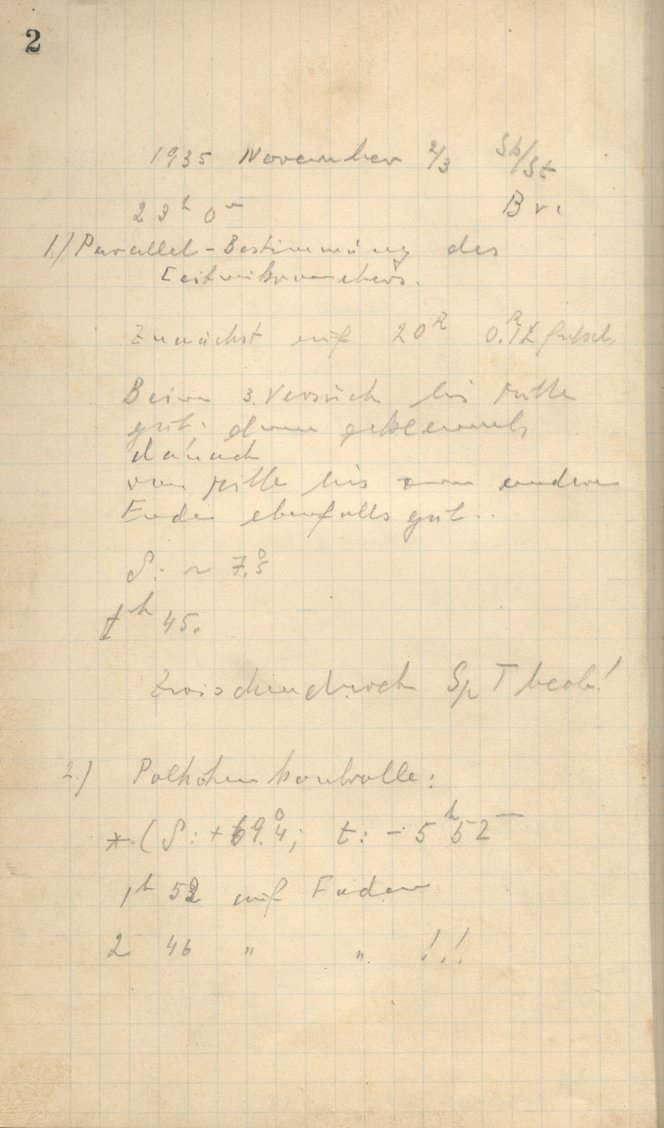 2
1935 November 2/3 Sh/St
23h 0m Br.
1.) Parallel-Bestimmung des
Leitmikrometers.
Zunächst auf 20R
Beim 3. Versuch bis Mitte
gut: dann geklemmt,
danach
von Mitte bis zum anderen
Enden ebenfalls gut.
δ: ~ 7.°5
1h 45.
Zwischendurch Sp T beob!
2.) Polhöhenkontrolle:
* (δ: +69.°4; t: -5h 52m
1h 52 auf Faden
2 46 " " !!!